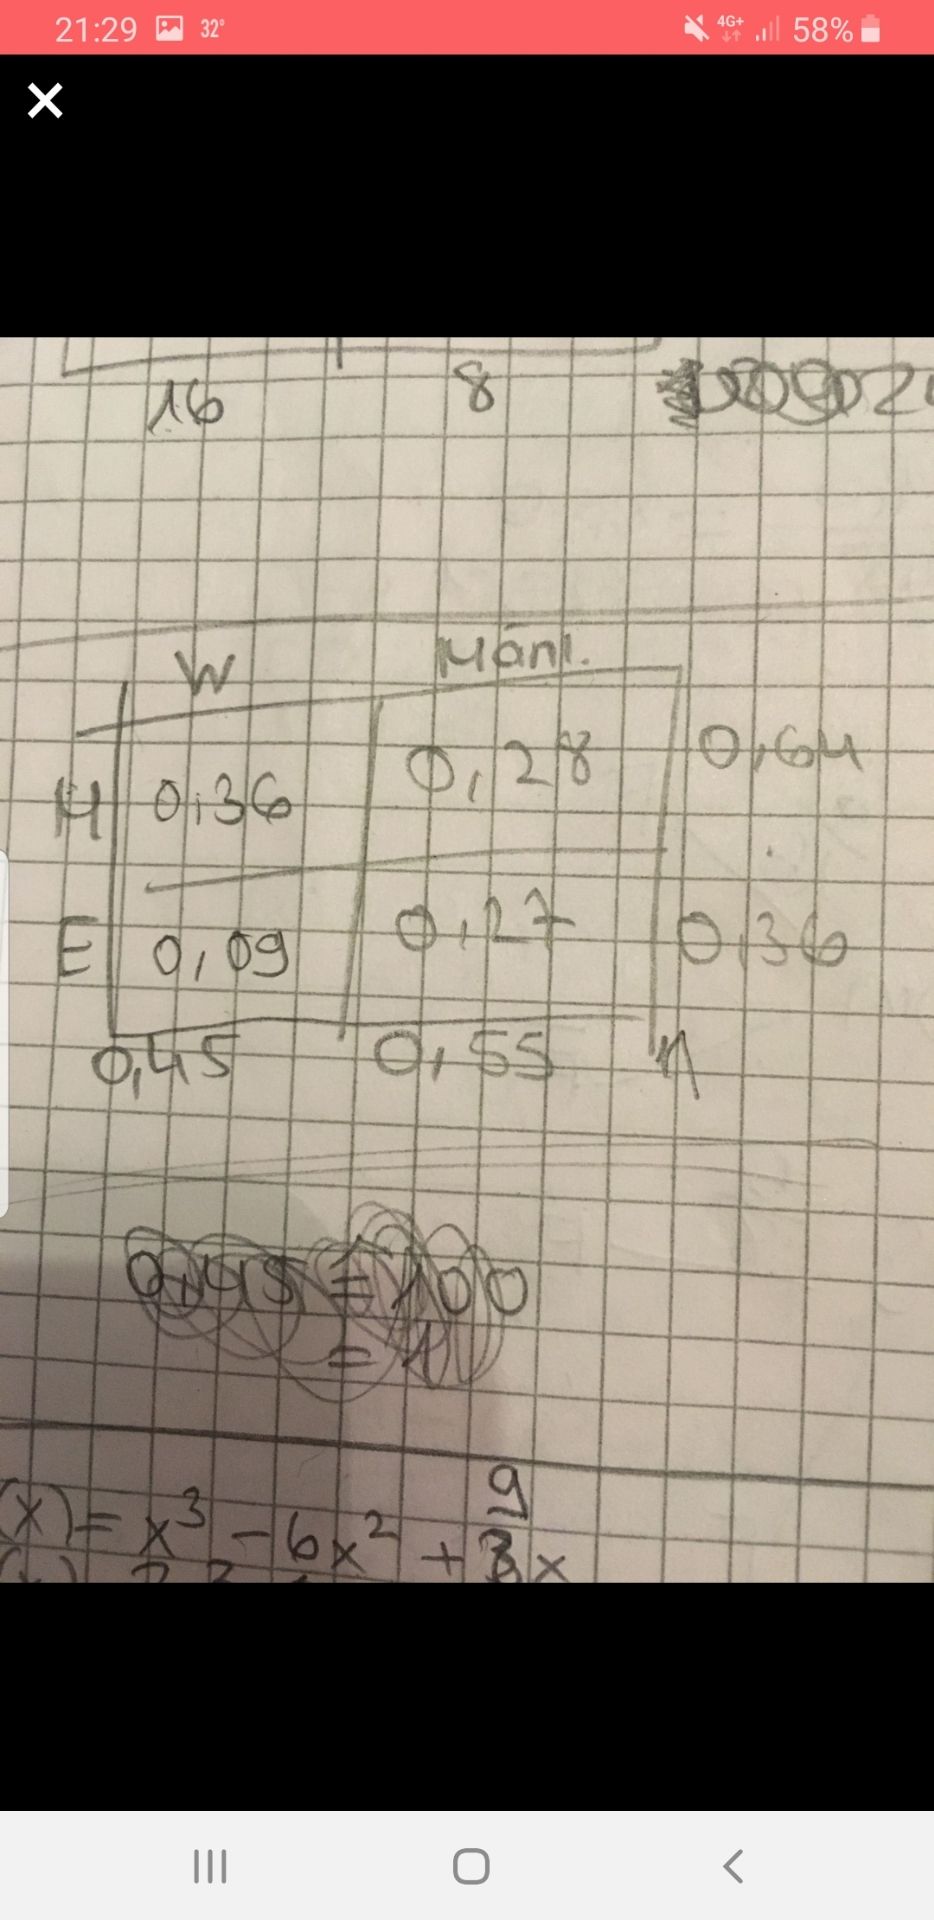 21:29 32° 4G+ 58%
16 8
W Männl.
H 0,36 0,28 0,64
E 0,09 0,27 0,36
0,45 0,55 1
0,45 = 100
= 1
9
(x) = x³ - 6x² + x